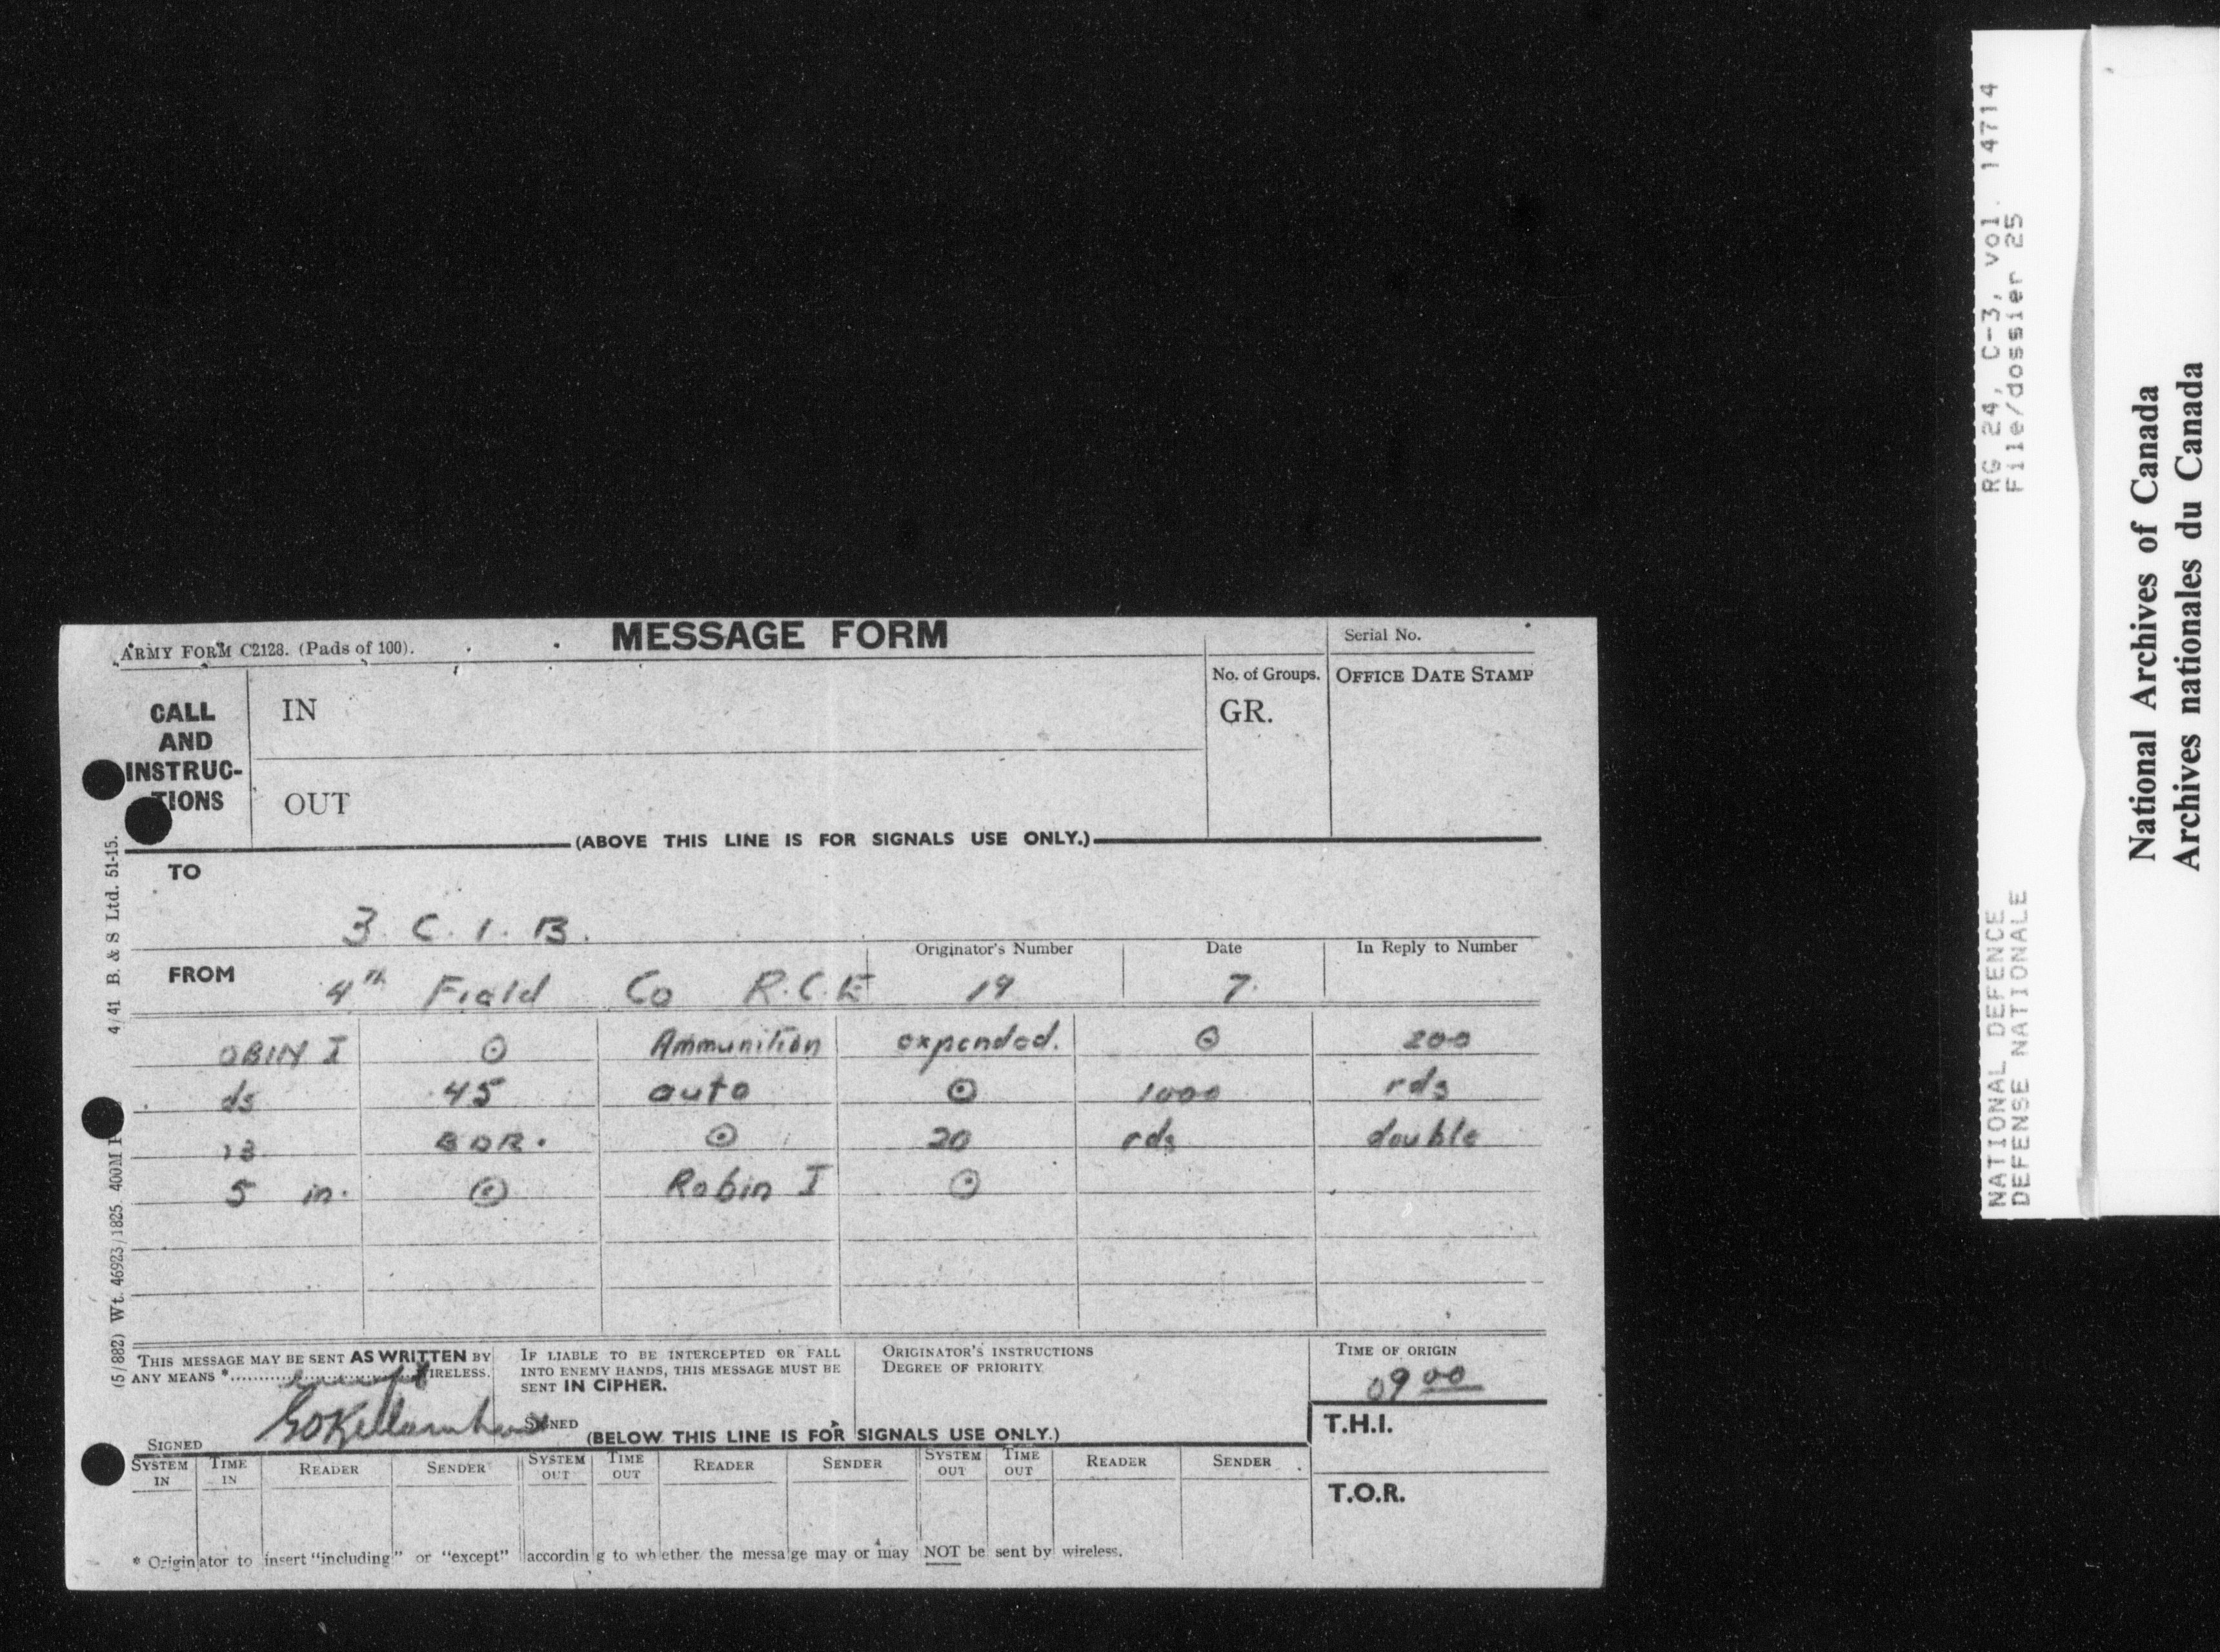 ARMY FORM C2128. (Pads of 100).
MESSAGE FORM
Serial No.
CALL AND INSTRUC-TIONS
IN
No. of Groups.
GR.
OFFICE DATE STAMP
OUT
(ABOVE THIS LINE IS FOR SIGNALS USE ONLY.)
TO
3. C. I. B.
Originator's Number
Date
In Reply to Number
FROM
4th Field Co R.C.E
19
7.
OBIN I ⊙ Ammunition expended. ⊙ 200
ds 45 auto ⊙ 1000 rds
BDR. ⊙ 20 rds double
5 in. ⊙ Robin I ⊙
THIS MESSAGE MAY BE SENT AS WRITTEN BY
ANY MEANS * except WIRELESS.
SIGNED
IF LIABLE TO BE INTERCEPTED OR FALL
INTO ENEMY HANDS, THIS MESSAGE MUST BE
SENT IN CIPHER.
SIGNED
ORIGINATOR'S INSTRUCTIONS
DEGREE OF PRIORITY
TIME OF ORIGIN
0900
(BELOW THIS LINE IS FOR SIGNALS USE ONLY.)
T.H.I.
SYSTEM IN TIME IN READER SENDER SYSTEM OUT TIME OUT READER SENDER SYSTEM OUT TIME OUT READER SENDER
T.O.R.
* Originator to insert "including" or "except" according to whether the message may or may NOT be sent by wireless.
4/41 B. & S Ltd. 51-15.
(5/882) Wt. 46923/1825 400M
RG 24, C-3, vol. 14714
File/dossier 25
NATIONAL DEFENCE
DEFENSE NATIONALE
National Archives of Canada
Archives nationales du Canada